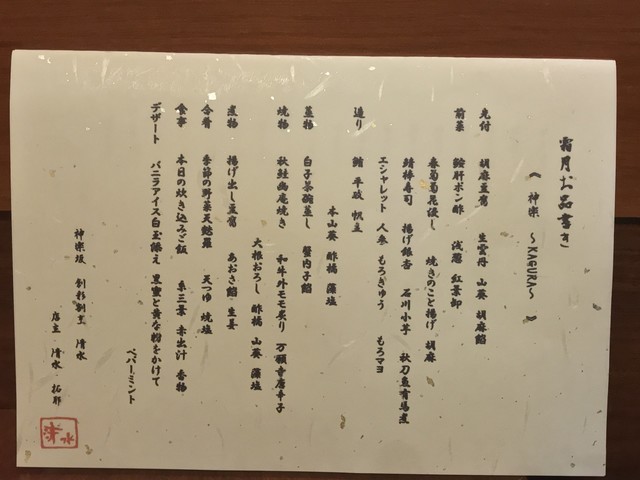 霜月お品書き
《 神楽 〜KAGURA〜 》
先付 胡麻豆腐 生雲丹 山葵 胡麻餡
前菜 鮟肝ポン酢 浅葱 紅葉卸
春菊菊花浸し 焼きのこと揚げ 胡麻
鯖棒寿司 揚げ銀杏 石川小芋 秋刀魚有馬煮
エシャレット 人参 もろきゅう もろマヨ
造り 鮪 平政 帆立
本山葵 酢橘 藻塩
蒸物 白子茶碗蒸し 蟹内子餡
焼物 秋鮭幽庵焼き 和牛外モモ炙り 万願寺唐辛子
大根おろし 酢橘 山葵 藻塩
煮物 揚げ出し豆腐 あおさ餡 生姜
合肴 季節の野菜天麩羅 天つゆ 焼塩
食事 本日の炊き込みご飯 糸三葉 赤出汁 香物
デザート バニラアイス白玉添え 黒蜜と黄な粉をかけて
ペパーミント
神楽坂 創彩割烹 清水
店主 清水 拓郎
清水